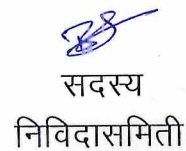 सदस्य
निविदासमिती